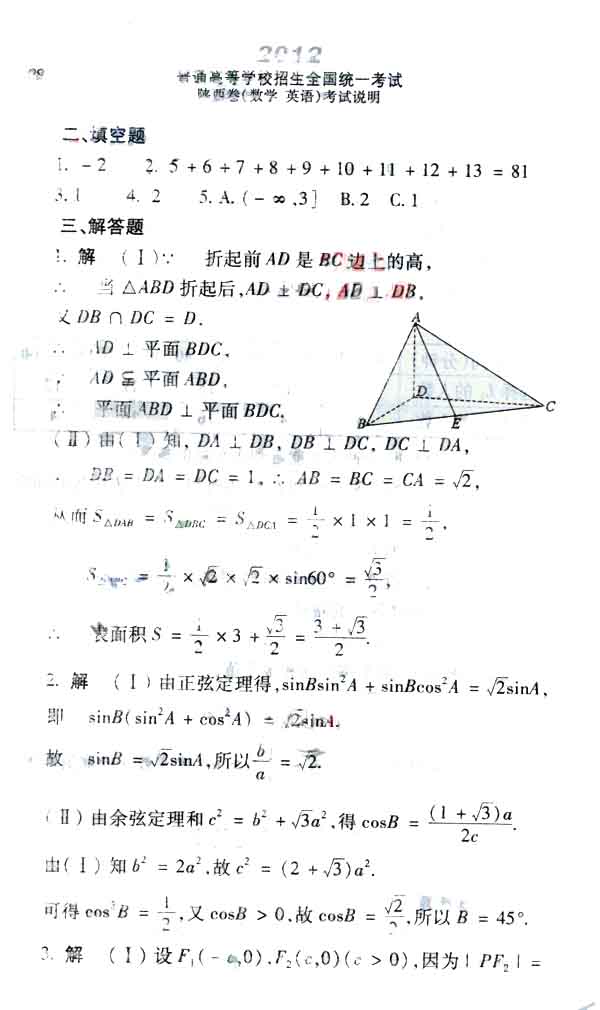 2012
普通高等学校招生全国统一考试
陕西卷(数学 英语)考试说明
二、填空题
1. -2 2. 5+6+7+8+9+10+11+12+13=81
3. 1 4. 2 5. A. (-∞,3] B. 2 C. 1
三、解答题
1. 解 (Ⅰ)∵ 折起前AD是BC边上的高,
∴ 当△ABD折起后,AD⊥DC,AD⊥DB,
又DB∩DC=D.
∴ AD⊥平面BDC,
AD⫋平面ABD,
∴ 平面ABD⊥平面BDC.
A
D
C
B
E
(Ⅱ)由(Ⅰ)知,DA⊥DB,DB⊥DC,DC⊥DA,
DB=DA=DC=1,∴ AB=BC=CA=√2,
从而S△DAB=S△DBC=S△DCA=1/2×1×1=1/2,
S=1/2×√2×√2×sin60°=√3/2,
∴ 表面积S=1/2×3+√3/2=(3+√3)/2.
2. 解 (Ⅰ)由正弦定理得,sinBsin²A+sinBcos²A=√2sinA,
即 sinB(sin²A+cos²A)=√2sinA.
故 sinB=√2sinA,所以b/a=√2.
(Ⅱ)由余弦定理和c²=b²+√3a²,得cosB=(1+√3)a/2c.
由(Ⅰ)知b²=2a²,故c²=(2+√3)a².
可得cos²B=1/2,又cosB>0,故cosB=√2/2,所以B=45°.
3. 解 (Ⅰ)设F₁(-c,0),F₂(c,0)(c>0),因为|PF₂|=